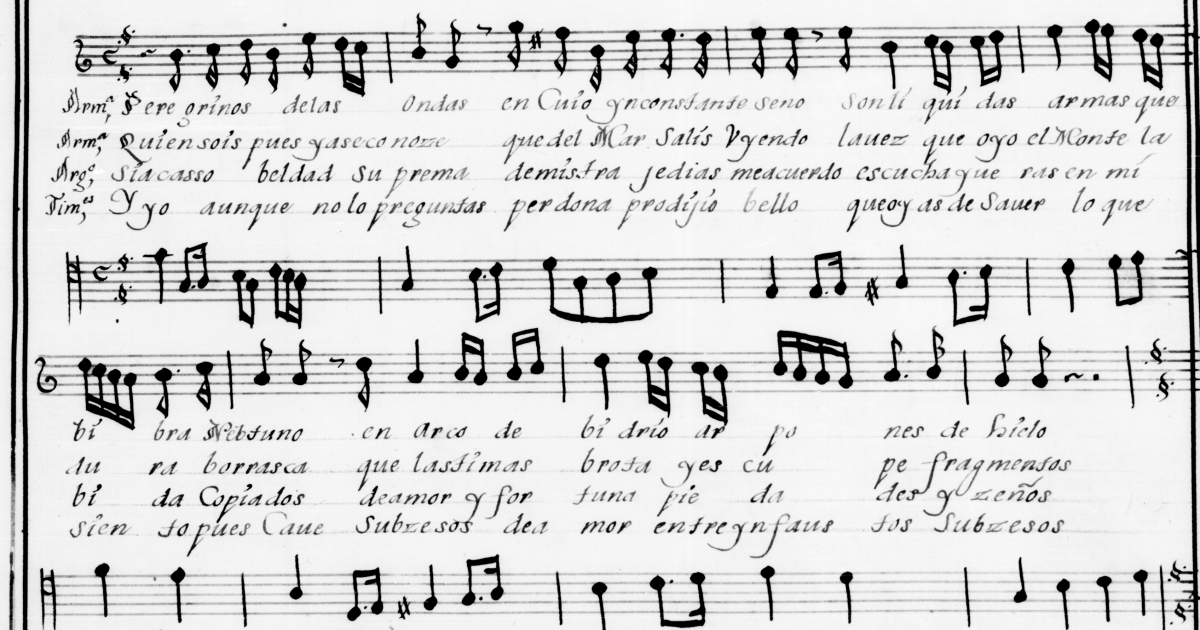 Arm.ª, Pere grinos delas ondas en Cuio ynconstante seno sonlí qui das armas que
Arm.ª Quiensois pues yaseco noze quedel Mar Salís Vyendo lauez que oyo el Monte la
Arg.ᵉ, Siacasso beldad Suprema demistra jedias meacuerdo escuchaque ras en mí
Tim.ᵉˢ Y yo aunque nolo preguntas perdona prodijio bello queoyas de Sauer lo que
bi bra Nebtuno en arco de bi drio ar po nes de hielo
du ra borrasca que lastimas brota yes cu pe fragmentos
bi da Copiados deamor y for tuna pie da des y zeños
sien to pues Caue Subzesos dea mor entreynfaus tos Subzesos